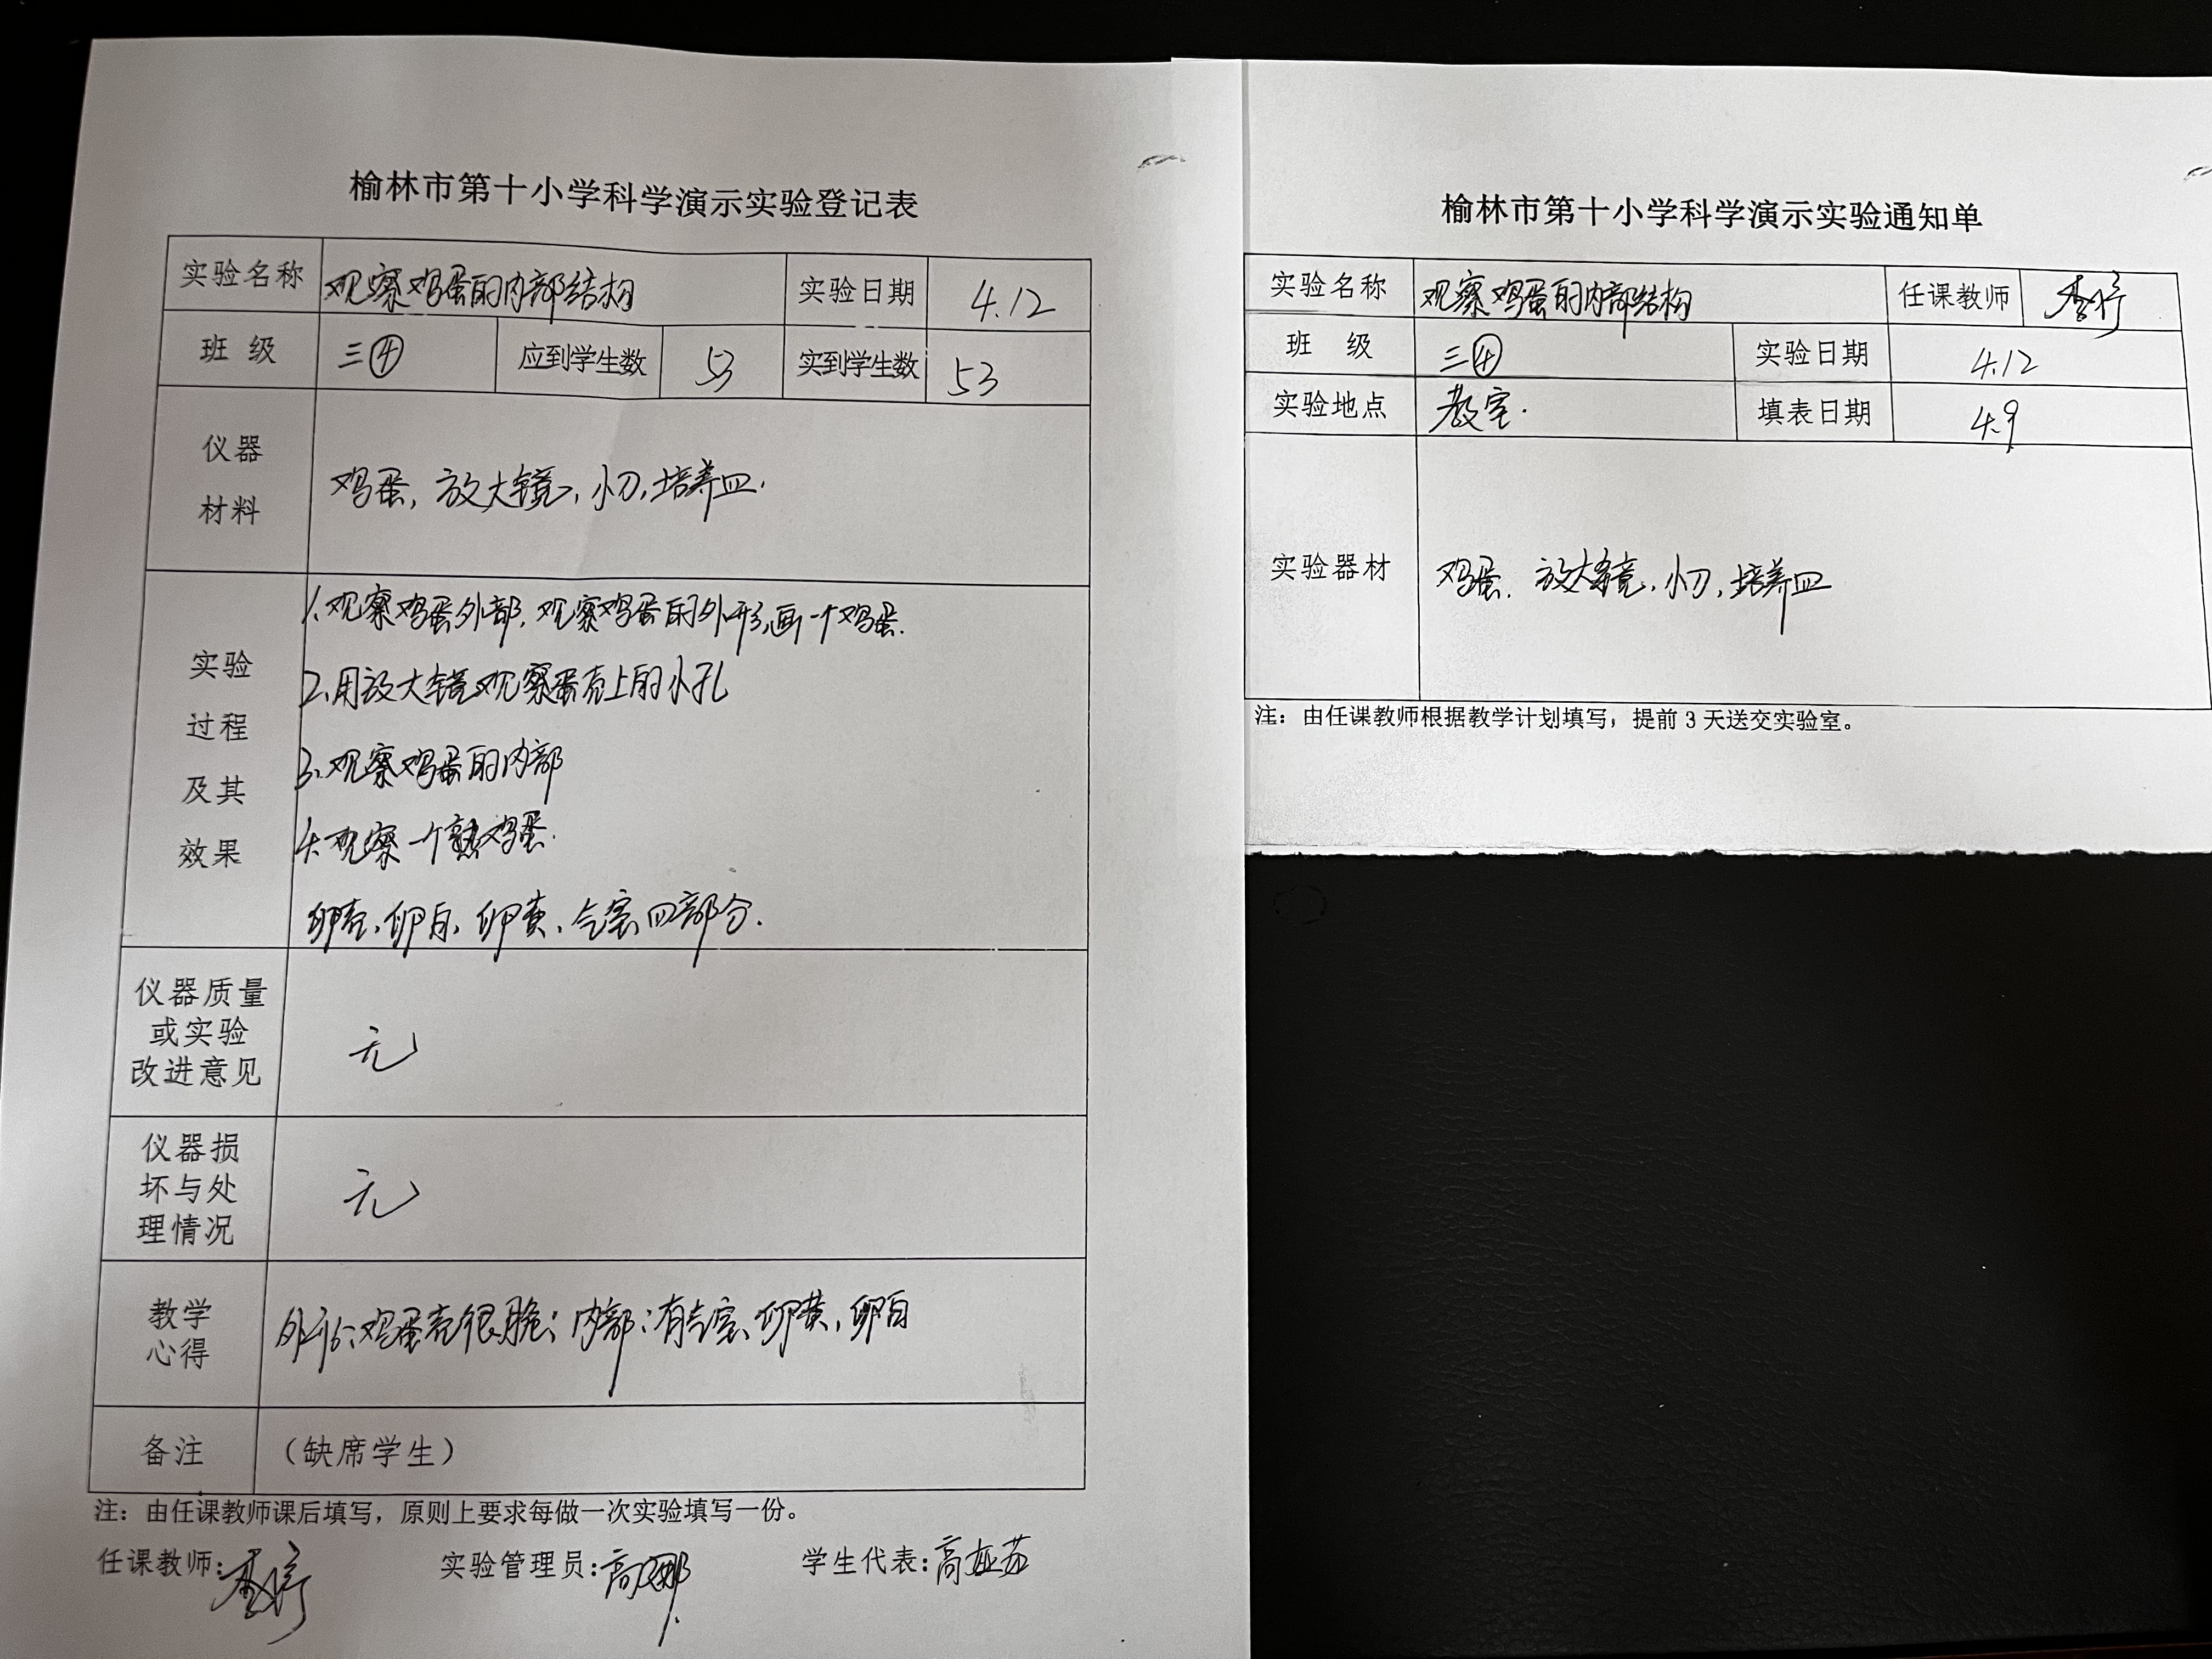 榆林市第十小学科学演示实验登记表
实验名称 观察鸡蛋的内部结构 实验日期 4.12
班 级 三④ 应到学生数 53 实到学生数 53
仪器
材料
鸡蛋, 放大镜, 小刀, 培养皿.
实验
过程
及其
效果
1.观察鸡蛋外部, 观察鸡蛋的外形, 画一个鸡蛋.
2.用放大镜观察蛋壳上的小孔
3.观察鸡蛋的内部
4.观察一个熟鸡蛋.
卵壳、卵白、卵黄、气室四部分.
仪器质量
或实验
改进意见
无
仪器损
坏与处
理情况
无
教学
心得
外形:鸡蛋壳很脆; 内部:有气室、卵黄, 卵白
备注 (缺席学生)
注: 由任课教师课后填写, 原则上要求每做一次实验填写一份。
任课教师: 实验管理员:高娜 学生代表:高
榆林市第十小学科学演示实验通知单
实验名称 观察鸡蛋的内部结构 任课教师
班 级 三④ 实验日期 4.12
实验地点 教室. 填表日期 4.9
实验器材 鸡蛋. 放大镜, 小刀, 培养皿
注: 由任课教师根据教学计划填写, 提前 3 天送交实验室。